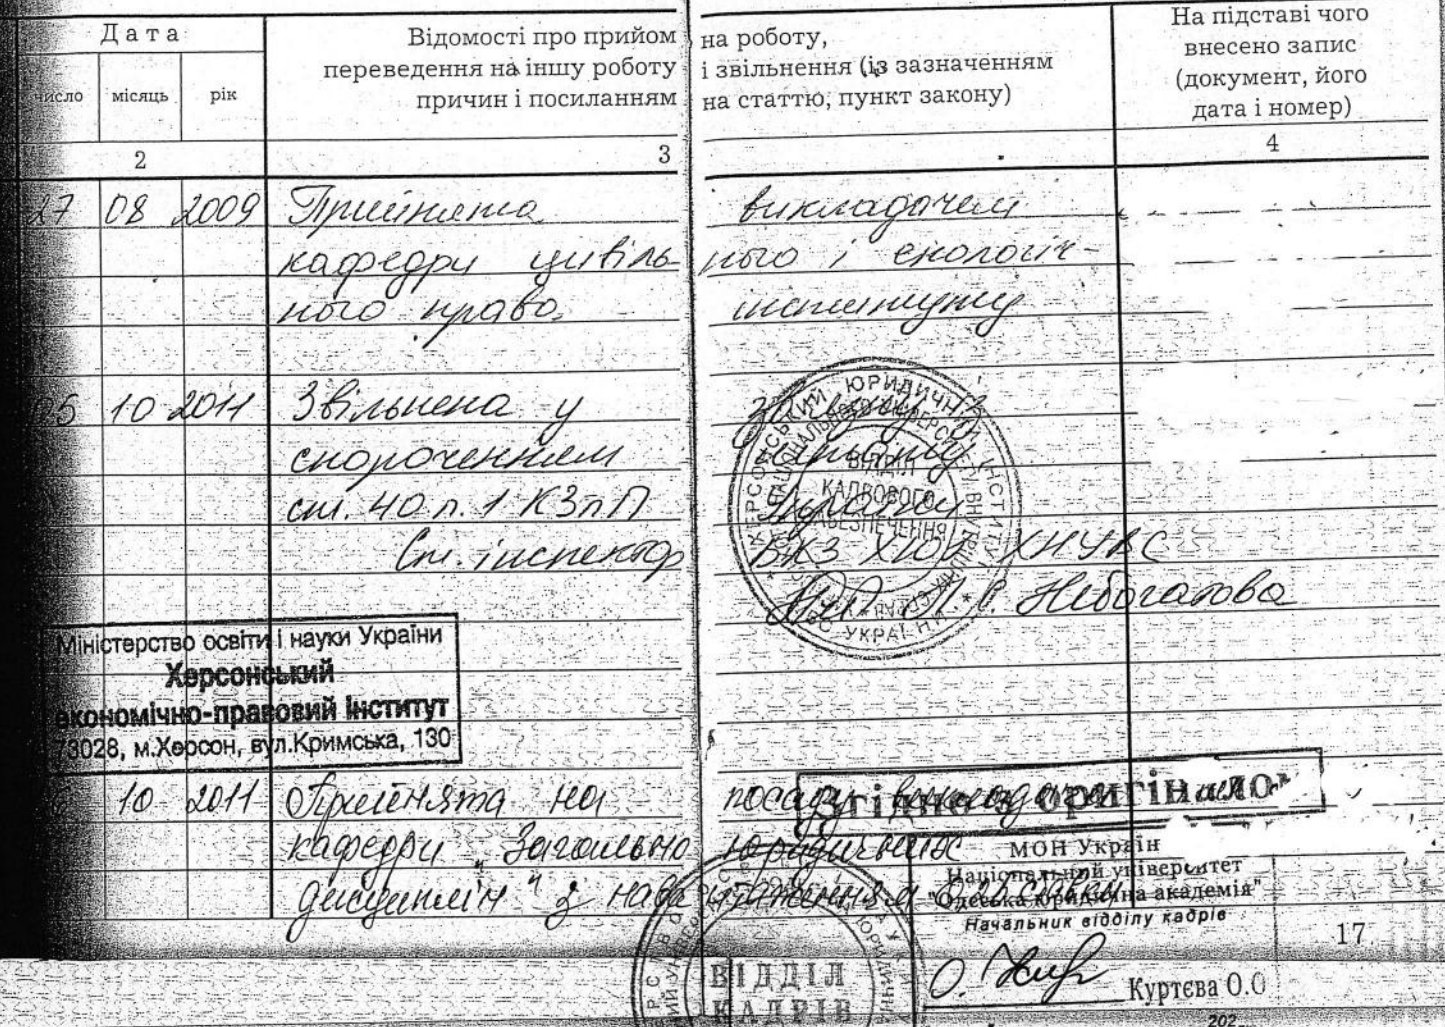 Дата
Відомості про прийом на роботу,
переведення на іншу роботу і звільнення (із зазначенням
причин і посиланням на статтю, пункт закону)
На підставі чого
внесено запис
(документ, його
дата і номер)
число місяць рік
2 3 4
27 08 2009 Прийнята викладачем
кафедри цивіль- ного і екологіч-
ного права інституту
05 10 2011 Звільнена у зв'язку з
скороченням штату
ст. 40 п. 1 КЗпП України
Ст. інспектор ВКЗ ХЮІ ХНУВС
Л. С. Небогатова
ХЕРСОНСЬКИЙ ЮРИДИЧНИЙ ІНСТИТУТ
ВІДДІЛ
КАДРОВОГО
ЗАБЕЗПЕЧЕННЯ
УКРАЇНИ
Міністерство освіти і науки України
Херсонський
економічно-правовий інститут
73028, м.Херсон, вул.Кримська, 130
10 2011 Прийнята на посаду викладача
кафедри "Загально юридичних
дисциплін" з навантаженням 0,25 ставки
Згідно з оригіналом
МОН Україн
Національний університет
"Одеська юридична академія"
Начальник відділу кадрів
17
О. Куртєва О.О
ВІДДІЛ
КАДРІВ
202